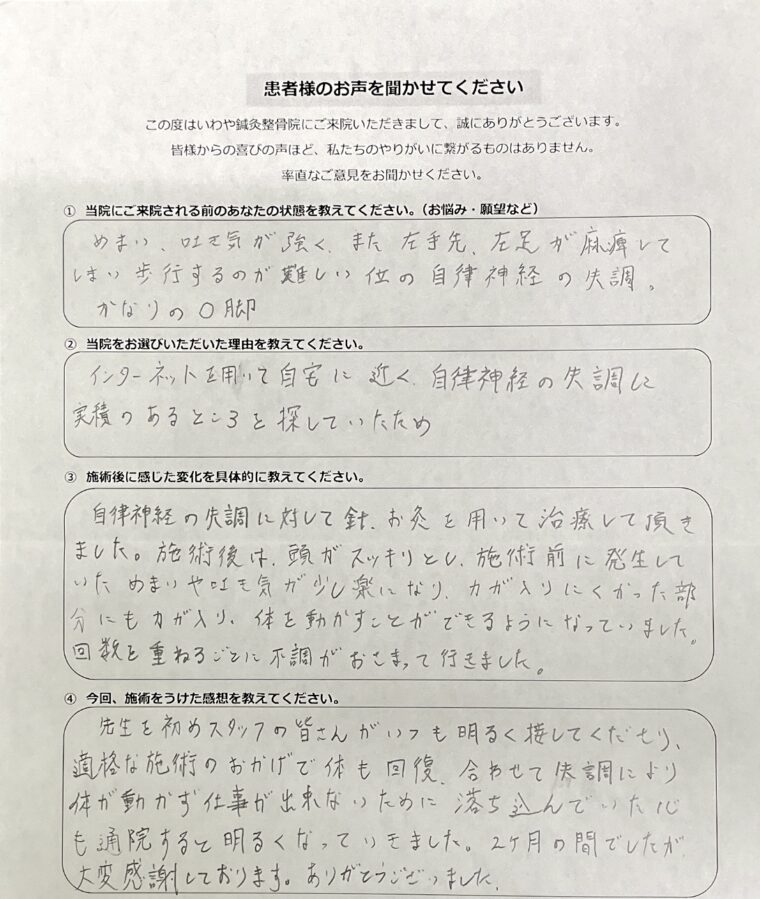 患者様のお声を聞かせてください
この度はいわや鍼灸整骨院にご来院いただきまして、誠にありがとうございます。
皆様からの喜びの声ほど、私たちのやりがいに繋がるものはありません。
率直なご意見をお聞かせください。
① 当院にご来院される前のあなたの状態を教えてください。（お悩み・願望など）
めまい、吐き気が強く、また左手先、左足が麻痺して
しまい歩行するのが難しい位の自律神経の失調。
かなりのO脚
② 当院をお選びいただいた理由を教えてください。
インターネットを用いて自宅に近く、自律神経の失調に
実積のあるところを探していたため
③ 施術後に感じた変化を具体的に教えてください。
自律神経の失調に対して針、お灸を用いて治療して頂き
ました。施術後は、頭がスッキリとし、施術前に発生して
いためまいや吐き気が少し楽になり、力が入りにくかった部
分にも力が入り、体を動かすことができるようになっていました。
回数を重ねるごとに不調がおさまって行きました。
④ 今回、施術をうけた感想を教えてください。
先生を初めスタッフの皆さんがいつも明るく接してくださり、
適格な施術のおかげで体も回復、合わせて失調により
体が動かず仕事が出来ないために落ち込んでいた心
も通院すると明るくなっていきました。2ヶ月の間でしたが、
大変感謝しております。ありがとうございました。